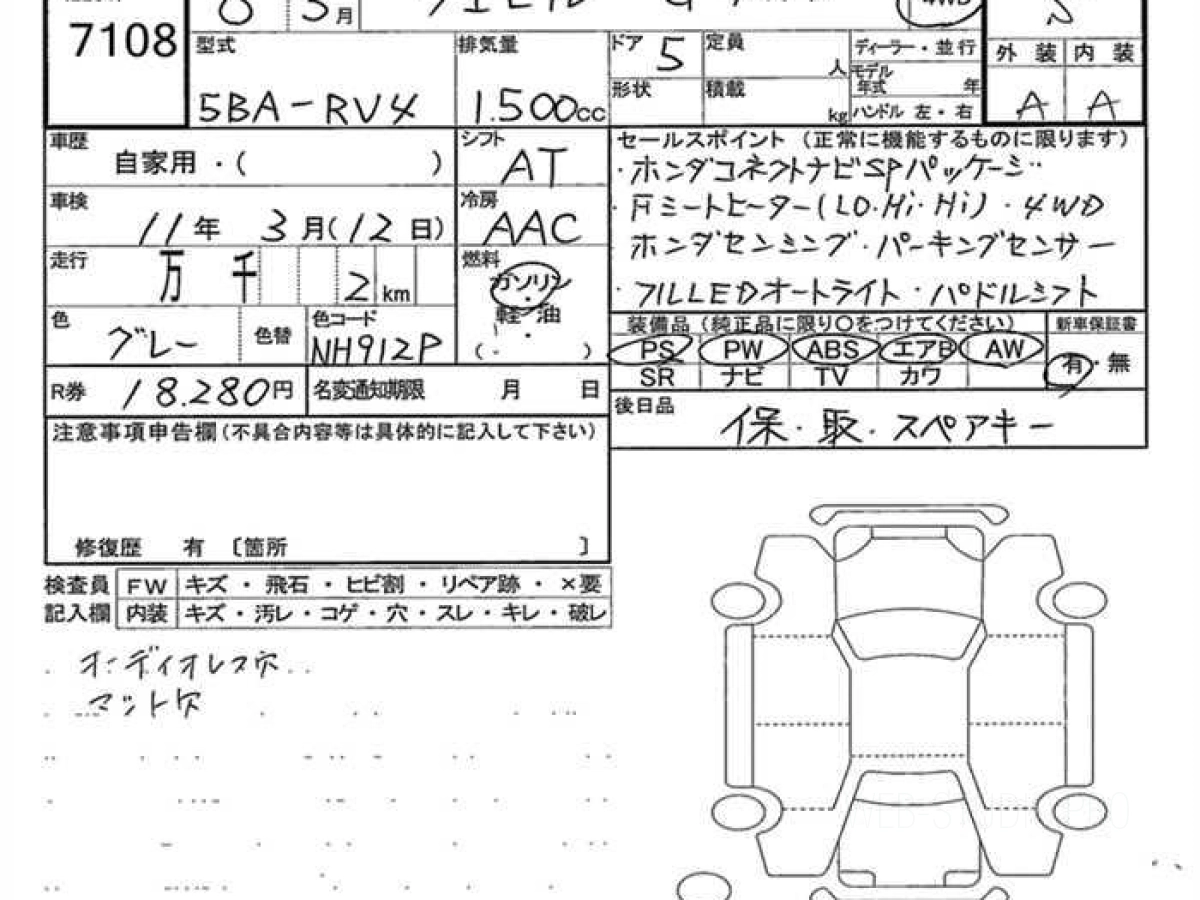 7108
3月
4WD
S
型式
5BA-RV4
排気量
1.500cc
ドア 5
定員
人
形状
積載
kg
ディーラー・並行
モデル年式 年
ハンドル 左・右
外装 内装
A A
車歴
自家用・( )
シフト
AT
車検
11年 3月(12日)
冷房
AAC
走行
万 千 2 km
燃料
ガソリン
・
軽・油
( ・ )
色
グレー
色替
色コード
NH912P
R券 18.280円
名変通知期限 月 日
セールスポイント (正常に機能するものに限ります)
・ホンダコネクトナビSPパッケージ
・Fシートヒーター(LO・Hi・Hi)・4WD
ホンダセンシング・パーキングセンサー
・フルLEDオートライト・パドルシフト
装備品 (純正品に限り〇をつけてください)
新車保証書
PS PW ABS エアB AW
SR ナビ TV カワ
有・無
後日品
保・取・スペアキー
注意事項申告欄(不具合内容等は具体的に記入して下さい)
修復歴 有 〔箇所 〕
検査員
記入欄
FW キズ・飛石・ヒビ割・リペア跡・×要
内装 キズ・汚レ・コゲ・穴・スレ・キレ・破レ
オーディオレス穴
マット欠